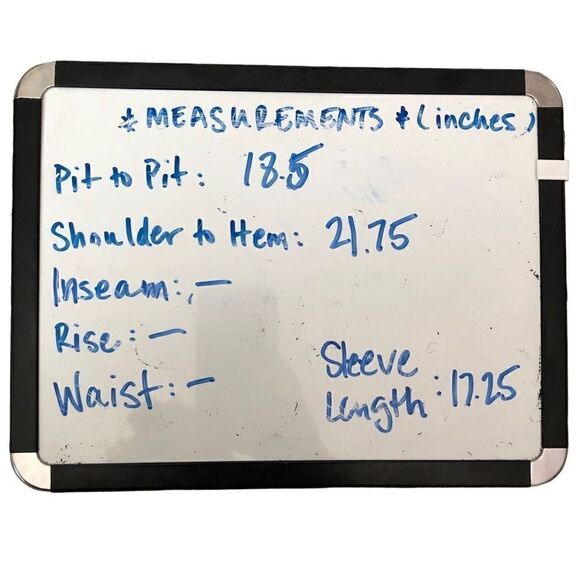 * MEASUREMENTS * (inches)
Pit to Pit: 18.5
Shoulder to Hem: 21.75
Inseam: —
Rise: —
Waist: —
Sleeve
Length: 17.25